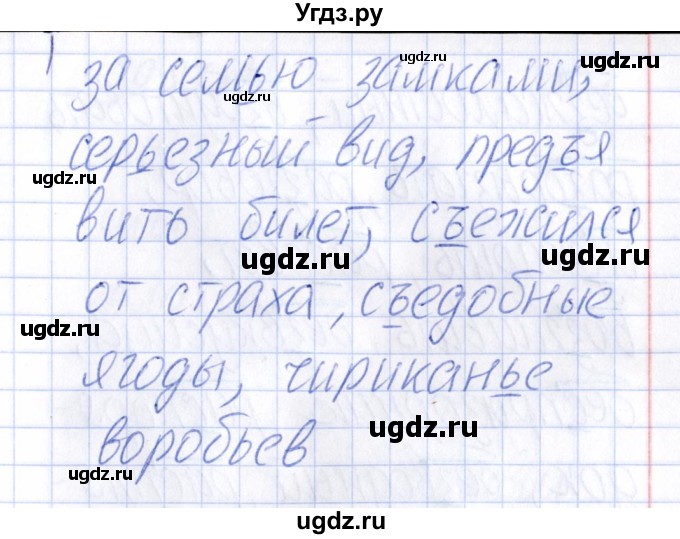 Угдз.ру
ugdz.ru
за семью замками,
ugdz.ru
ugdz.ru
серьезный вид, предъя
ugdz.ru
вить билет, съежился
ugdz.ru
ugdz.ru
от страха, съедобные
ugdz.ru
ягоды, чириканье
ugdz.ru
воробьев
ugdz.ru
ugdz.ru